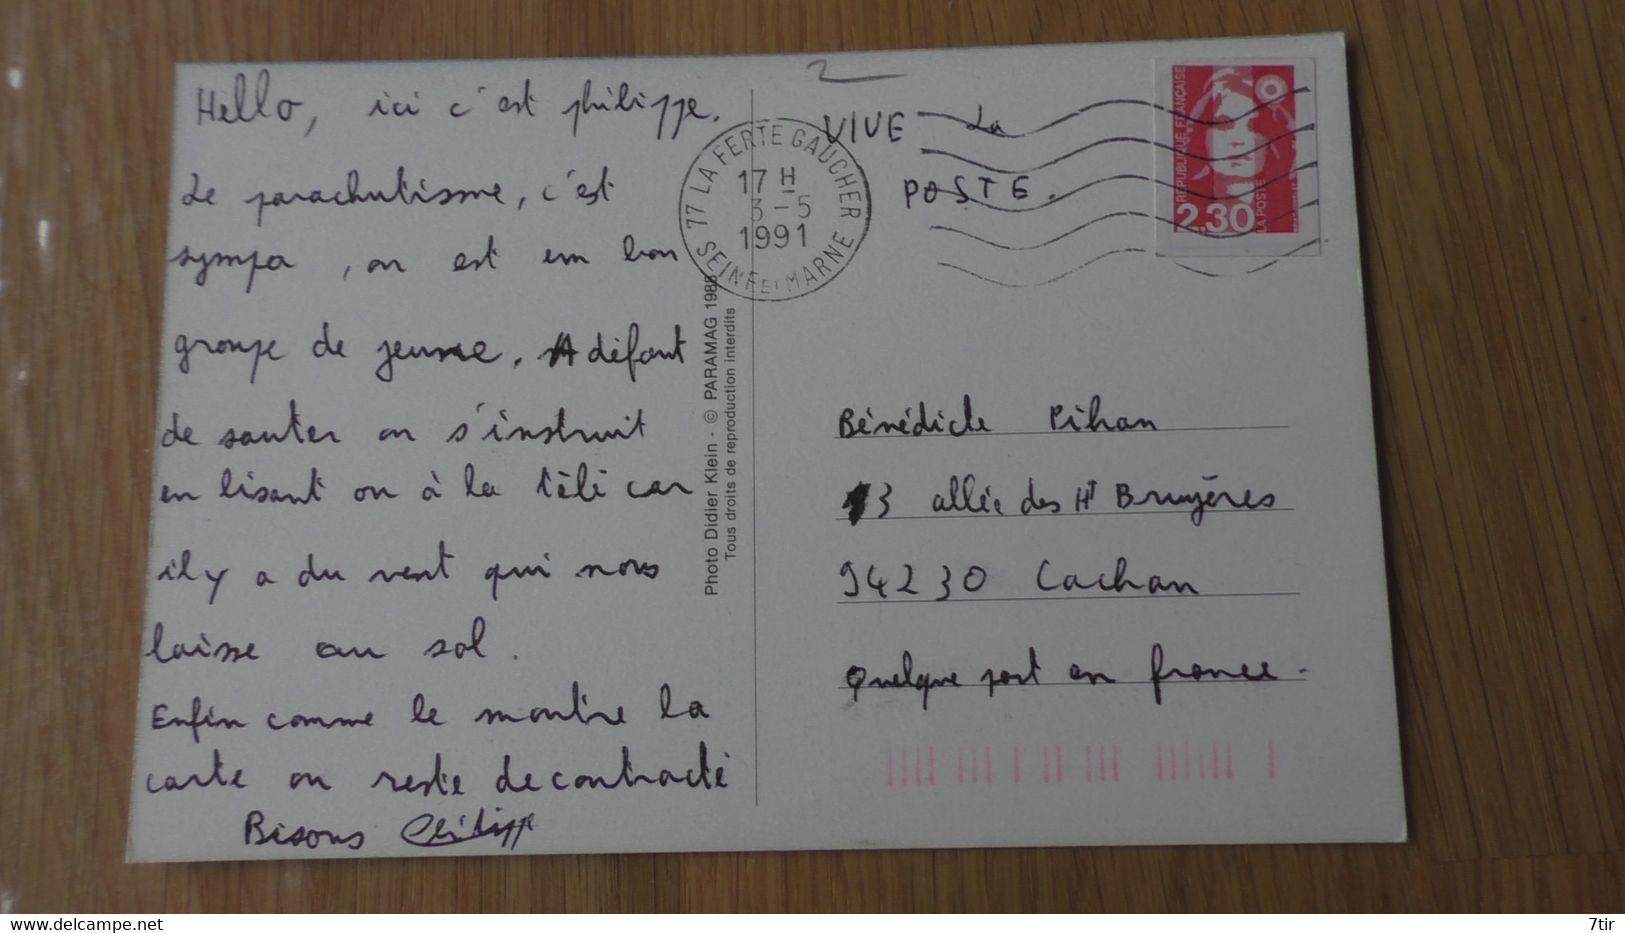 Hello, ici c'est philippe.
Le parachutisme, c'est
sympa, on est un bon
groupe de jeune. A défaut
de sauter on s'instruit
en lisant ou à la télé car
il y a du vent qui nous
laisse au sol.
Enfin comme le montre la
carte on reste decontracté
Bisous Philippe
Photo Didier Klein - © PARAMAG 1988
Tous droits de reproduction interdits
77 LA FERTE GAUCHER
17 H
3-5
1991
SEINE ET MARNE
VIVE La
POSTE.
REPUBLIQUE FRANÇAISE
2,30
LA POSTE
Bénédicte Pihan
13 allée des Ht Bruyères
94230 Cachan
Quelque part en france.
delcampe.net
7tir